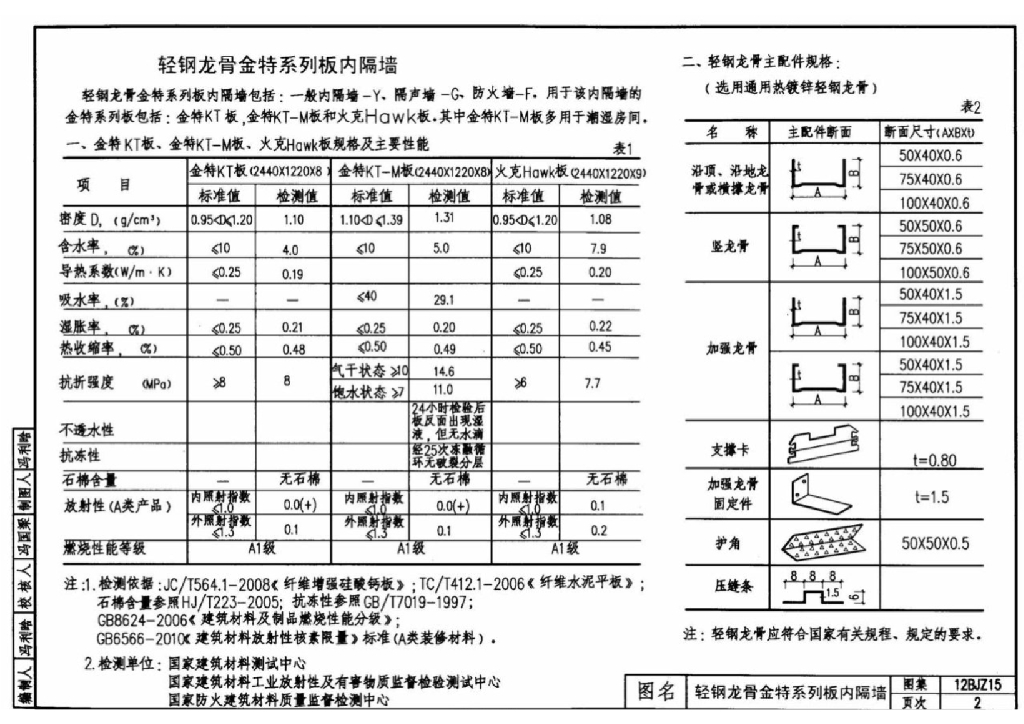 轻钢龙骨金特系列板内隔墙
轻钢龙骨金特系列板内隔墙包括：一般内隔墙-Y、隔声墙-G、防火墙-F，用于该内隔墙的
金特系列板包括：金特KT板,金特KT-M板和火克Hawk板.其中金特KT-M板多用于潮湿房间.
一、金特KT板、金特KT-M板、火克Hawk板规格及主要性能 表1
项 目 金特KT板(2440X1220X8) 金特KT-M板(2440X1220X8) 火克Hawk板(2440X1220X9)
标准值 检测值 标准值 检测值 标准值 检测值
密度D,(g/cm³) 0.95<D≤1.20 1.10 1.10<D≤1.39 1.31 0.95<D≤1.20 1.08
含水率,(%) ≤10 4.0 ≤10 5.0 ≤10 7.9
导热系数(W/m·K) ≤0.25 0.19 ≤0.25 0.20
吸水率,(%) — — ≤40 29.1 — —
湿胀率,(%) ≤0.25 0.21 ≤0.25 0.20 ≤0.25 0.22
热收缩率,(%) ≤0.50 0.48 ≤0.50 0.49 ≤0.50 0.45
抗折强度(MPa) ≥8 8 气干状态≥10 14.6 ≥6 7.7
饱水状态≥7 11.0
不透水性 24小时检验后
板反面出现湿
液，但无水滴
抗冻性 经25次冻融循
环无破裂分层
石棉含量 — 无石棉 — 无石棉 — 无石棉
放射性(A类产品) 内照射指数≤1.0 0.0(+) 内照射指数≤1.0 0.0(+) 内照射指数≤1.0 0.1
外照射指数≤1.3 0.1 外照射指数≤1.3 0.1 外照射指数≤1.3 0.2
燃烧性能等级 A1级 A1级 A1级
注:1.检测依据:JC/T564.1-2008《纤维增强硅酸钙板》;TC/T412.1-2006《纤维水泥平板》;
石棉含量参照HJ/T223-2005；抗冻性参照GB/T7019-1997；
GB8624-2006《建筑材料及制品燃烧性能分级》；
GB6566-2010《建筑材料放射性核素限量》标准(A类装修材料).
2.检测单位：国家建筑材料测试中心
国家建筑材料工业放射性及有害物质监督检验测试中心
国家防火建筑材料质量监督检测中心
二、轻钢龙骨主配件规格：
(选用通用热镀锌轻钢龙骨)
表2
名 称 主配件断面 断面尺寸(AXBXt)
沿顶、沿地龙
骨或横撑龙骨
t A B
50X40X0.6
75X40X0.6
100X40X0.6
竖龙骨
t A B
50X50X0.6
75X50X0.6
100X50X0.6
加强龙骨
t A B
50X40X1.5
75X40X1.5
100X40X1.5
t A B
50X40X1.5
75X40X1.5
100X40X1.5
支撑卡 t=0.80
加强龙骨
固定件 t=1.5
护角 50X50X0.5
压缝条 8 8 8 1.5 6
注：轻钢龙骨应符合国家有关规程、规定的要求.
编制人 冯利晗 校核人 冯国梁 制图人 冯利晗
图名 轻钢龙骨金特系列板内隔墙 图集 12BJZ15
页次 2